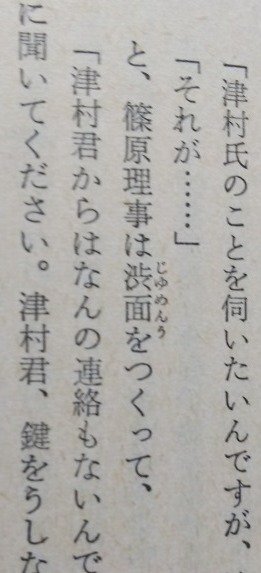 「津村氏のことを伺いたいんですが、
「それが……」
と、篠原理事は渋面をつくって、
じゆめんう
「津村君からはなんの連絡もないんで
に聞いてください。津村君、鍵をうしな